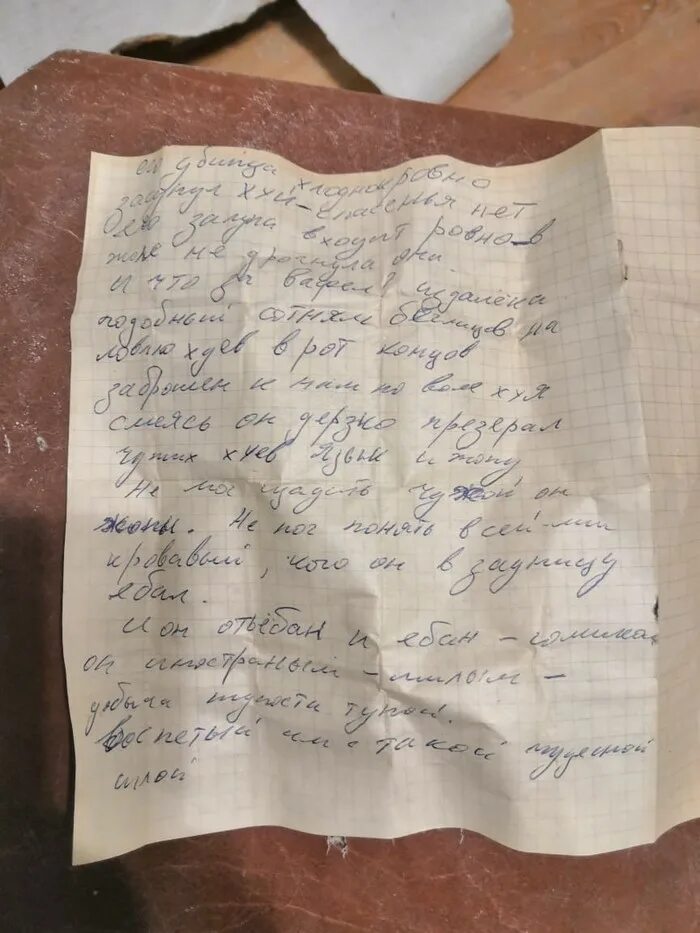 его убийца хладнокровно
засунул хуй - спасенья нет
его залупа входит ровно в
жопе не дрогнула она
И что за вафел? издалёка
подобный сотням беглицов на
ловлю хуев в рот концов
заброшен к нам по воле хуя
смеясь он дерзко презерал
чужих хуев язык и жопу
Не мог щадить чужой он
жопы. Не мог понять в сей-миг
кровавый, кого он в задницу
ебал.
И он отъебан и ебан -
он иностраным - милым -
добыча тупости тупой.
Воспетый им с такой чудесной
силой